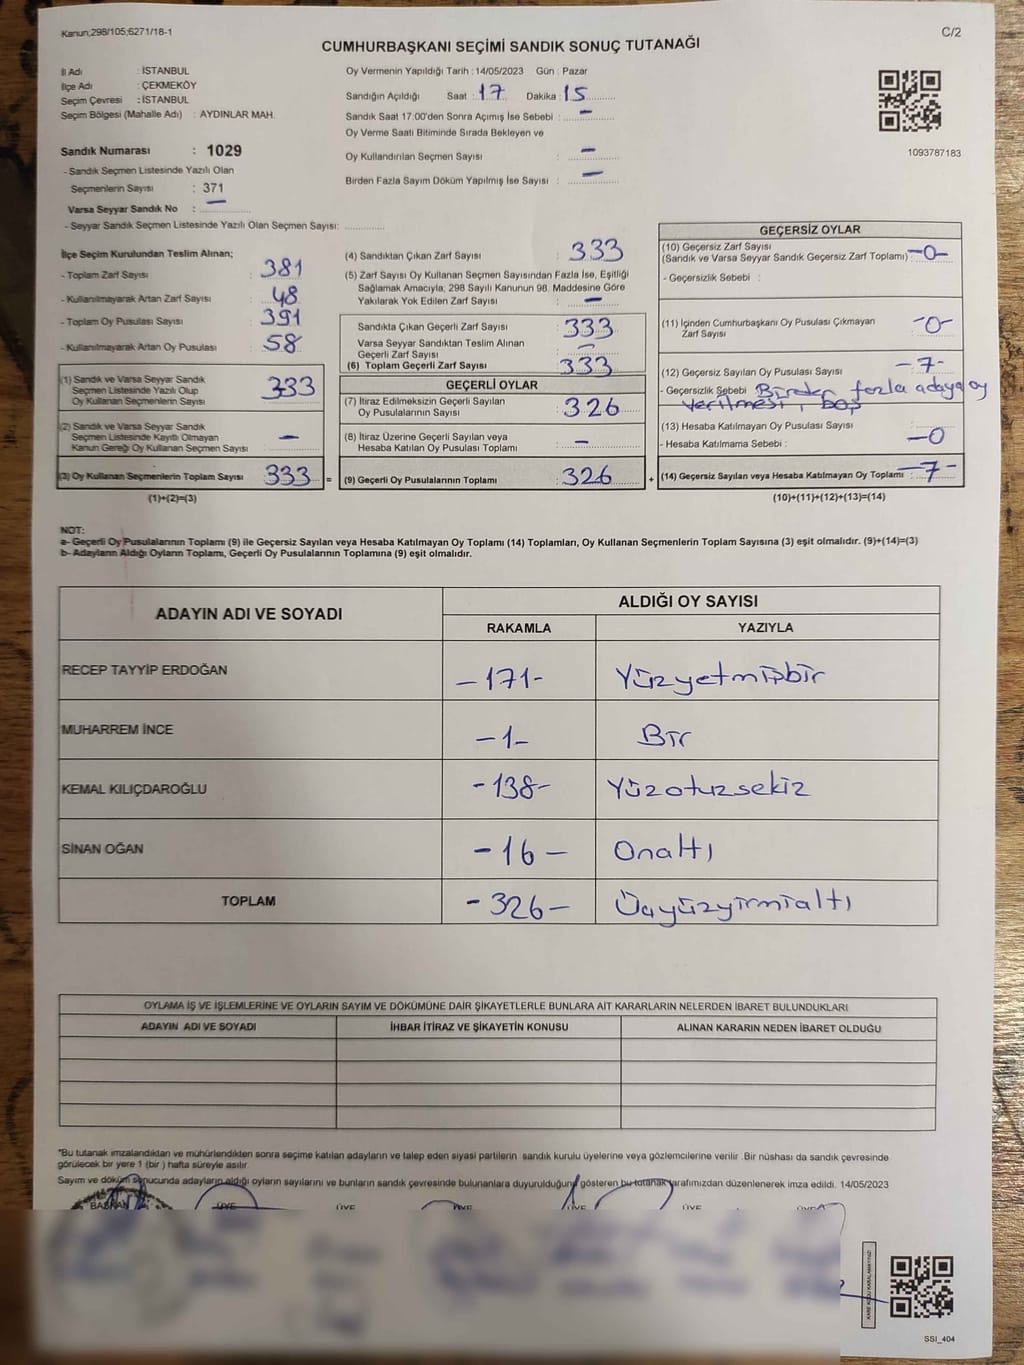 Kanun;298/105;6271/18-1
C/2
CUMHURBAŞKANI SEÇİMİ SANDIK SONUÇ TUTANAĞI
İl Adı : İSTANBUL
İlçe Adı : ÇEKMEKÖY
Seçim Çevresi : İSTANBUL
Seçim Bölgesi (Mahalle Adı) : AYDINLAR MAH.
Sandık Numarası : 1029
- Sandık Seçmen Listesinde Yazılı Olan
Seçmenlerin Sayısı : 371
Varsa Seyyar Sandık No : —
- Seyyar Sandık Seçmen Listesinde Yazılı Olan Seçmen Sayısı:
Oy Vermenin Yapıldığı Tarih : 14/05/2023 Gün : Pazar
Sandığın Açıldığı Saat : 17 Dakika : 15
Sandık Saat 17:00'den Sonra Açımış İse Sebebi : —
Oy Verme Saati Bitiminde Sırada Bekleyen ve
Oy Kullandırılan Seçmen Sayısı : —
Birden Fazla Sayım Döküm Yapılmış İse Sayısı : —
1093787183
İlçe Seçim Kurulundan Teslim Alınan;
- Toplam Zarf Sayısı : 381
- Kullanılmayarak Artan Zarf Sayısı : 48
- Toplam Oy Pusulası Sayısı : 391
- Kullanılmayarak Artan Oy Pusulası : 58
(1) Sandık ve Varsa Seyyar Sandık
Seçmen Listesinde Yazılı Olup
Oy Kullanan Seçmenlerin Sayısı 333
(2) Sandık ve Varsa Seyyar Sandık
Seçmen Listesinde Kayıtlı Olmayan
Kanun Gereği Oy Kullanan Seçmen Sayısı —
(3) Oy Kullanan Seçmenlerin Toplam Sayısı 333 =
(1)+(2)=(3)
(4) Sandıktan Çıkan Zarf Sayısı : 333
(5) Zarf Sayısı Oy Kullanan Seçmen Sayısından Fazla İse, Eşitliği
Sağlamak Amacıyla; 298 Sayılı Kanunun 98. Maddesine Göre
Yakılarak Yok Edilen Zarf Sayısı : —
Sandıkta Çıkan Geçerli Zarf Sayısı : 333
Varsa Seyyar Sandıktan Teslim Alınan
Geçerli Zarf Sayısı : —
(6) Toplam Geçerli Zarf Sayısı : 333
GEÇERLİ OYLAR
(7) İtiraz Edilmeksizin Geçerli Sayılan
Oy Pusulalarının Sayısı : 326
(8) İtiraz Üzerine Geçerli Sayılan veya
Hesaba Katılan Oy Pusulası Toplamı : —
(9) Geçerli Oy Pusulalarının Toplamı : 326 +
GEÇERSİZ OYLAR
(10) Geçersiz Zarf Sayısı
(Sandık ve Varsa Seyyar Sandık Geçersiz Zarf Toplamı) : -0-
- Geçersizlik Sebebi :
(11) İçinden Cumhurbaşkanı Oy Pusulası Çıkmayan
Zarf Sayısı : -0-
(12) Geçersiz Sayılan Oy Pusulası Sayısı : -7-
- Geçersizlik Sebebi : Birden fazla adaya oy
verilmesi, boş
(13) Hesaba Katılmayan Oy Pusulası Sayısı : -0
- Hesaba Katılmama Sebebi :
(14) Geçersiz Sayılan veya Hesaba Katılmayan Oy Toplamı : -7-
(10)+(11)+(12)+(13)=(14)
NOT:
a- Geçerli Oy Pusulalarının Toplamı (9) ile Geçersiz Sayılan veya Hesaba Katılmayan Oy Toplamı (14) Toplamları, Oy Kullanan Seçmenlerin Toplam Sayısına (3) eşit olmalıdır. (9)+(14)=(3)
b- Adayların Aldığı Oyların Toplamı, Geçerli Oy Pusulalarının Toplamına (9) eşit olmalıdır.
ADAYIN ADI VE SOYADI
ALDIĞI OY SAYISI
RAKAMLA YAZIYLA
RECEP TAYYİP ERDOĞAN -171- Yüzyetmişbir
MUHARREM İNCE -1- Bir
KEMAL KILIÇDAROĞLU -138- Yüzotuzsekiz
SİNAN OĞAN -16- Onaltı
TOPLAM -326- Üçyüzyirmialtı
OYLAMA İŞ VE İŞLEMLERİNE VE OYLARIN SAYIM VE DÖKÜMÜNE DAİR ŞİKAYETLERLE BUNLARA AİT KARARLARIN NELERDEN İBARET BULUNDUKLARI
ADAYIN ADI VE SOYADI İHBAR İTİRAZ VE ŞİKAYETİN KONUSU ALINAN KARARIN NEDEN İBARET OLDUĞU
"Bu tutanak imzalandıktan ve mühürlendikten sonra seçime katılan adayların ve talep eden siyasi partilerin sandık kurulu üyelerine veya gözlemcilerine verilir .Bir nüshası da sandık çevresinde
görülecek bir yere 1 (bir ) hafta süreyle asılır.
Sayım ve döküm sonucunda adayların aldığı oyların sayılarını ve bunların sandık çevresinde bulunanlara duyurulduğunu gösteren bu tutanak tarafımızdan düzenlenerek imza edildi. 14/05/2023
BAŞKAN ÜYE ÜYE ÜYE
KARE KODU KARALAMAYINIZ!
SSI_404